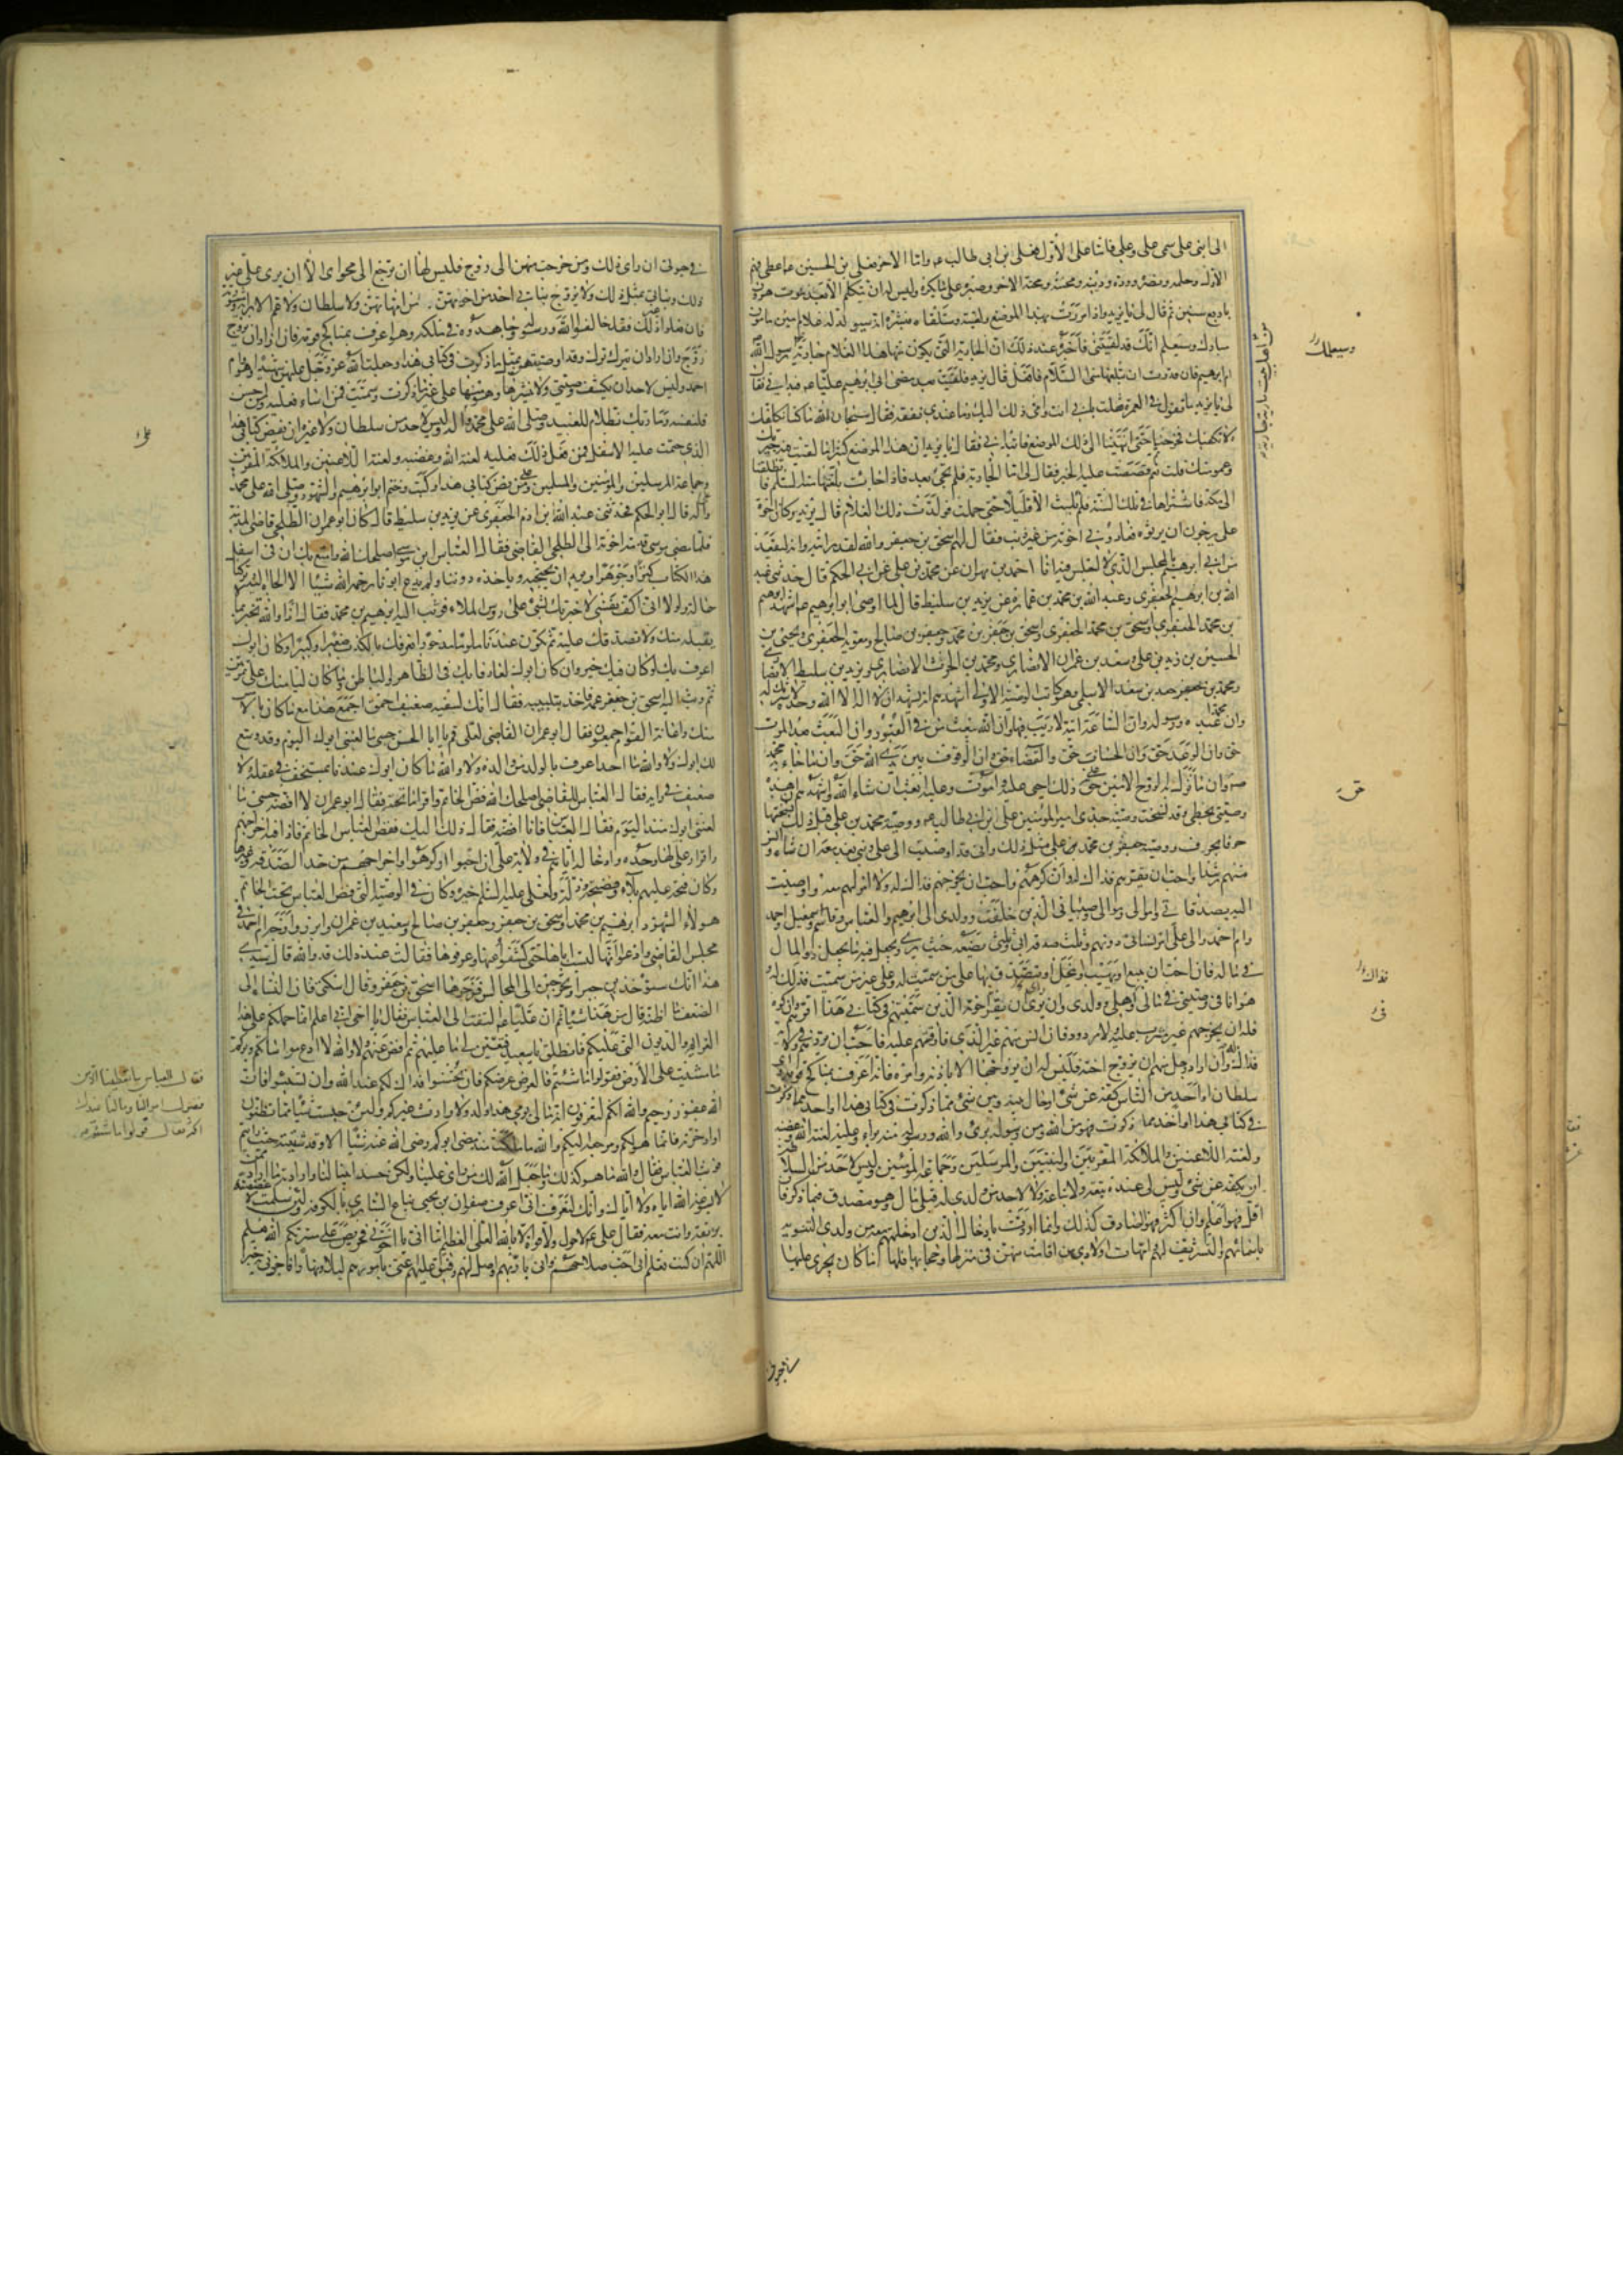 الى ابنى على سمى على وعلى فاما على الاول فعلى بن ابى طالب ع واما الاخر فعلى بن الحسين ع اعطى فهم
الاول وحلمه ونصره ووده ودينه ومحنته ومحنة الاخر وصبره على ما يكره وليس له ان يتكلم الا بعد موت هرون
باربع سنين ثم قال لى يا يزيد واذا مررت بهذا الموضع ولقيته وستلقاه فبشره انه سيولد له غلام امين مامون
مبارك وسيعلم انك قد لقيتنى فاخبره عند ذلك ان الجارية التى يكون منها هذا الغلام جارية رسول الله
ام ابرهيم فان قدرت ان تبلغها منى السلام فافعل قال يزيد فلقيت بعد مضى ابى ابرهيم عليا ع فبدانى فقال
لى يا يزيد ما تقول فى العمرة فقلت بابى انت وامى ذلك اليك وما عندى نفقة فقال سبحان الله ما كنا نكلفك
ولا نكفيك فخرجنا حتى انتهينا الى ذلك الموضع فابتدانى فقال يا يزيد ان هذا الموضع كثيرا ما لقيت فيه جيرتك
وعمومتك قلت نعم ثم قصصت عليه الخبر فقال لى اما الجارية فلم تجئ بعد فاذا جاءت بلغتها منه السلم فانطلقنا
الى مكة فاشتراها فى تلك السنة فلم تلبث الا قليلا حتى حملت فولدت ذلك الغلام قال يزيد وكان اخوة
على يرجون ان يرثوه فعادونى اخوته من غير ذنب فقال لهم اسحق بن جعفر والله لقد رايته وانه ليقعد
من ابى ابرهيم بالمجلس الذى لا اجلس فيه انا احمد بن مهران عن محمد بن على عن ابى الحكم قال حدثنى عبد
الله بن ابرهيم الجعفرى وعبد الله بن محمد بن عمارة عن يزيد بن سليط قال لما اوصى ابو ابرهيم ع اشهد ابرهيم
بن محمد الجعفرى واسحق بن محمد الجعفرى واسحق بن جعفر بن محمد وجعفر بن صالح ومعوية الجعفرى ويحيى بن
الحسين بن زيد بن على وسعد بن عمران الانصارى ومحمد بن الحرث الانصارى ويزيد بن سليط الانصارى
ومحمد بن جعفر بن سعد الاسلمى وهو كاتب الوصية الاولى اشهدهم انه يشهد ان لا اله الا الله وحده لا شريك له
وان محمدا عبده ورسوله وان الساعة اتية لا ريب فيها وان الله يبعث من فى القبور وان البعث بعد الموت
حق وان الوعد حق وان الحساب حق والقضاء حق وان الوقوف بين يدى الله حق وان ما جاء به محمد
ص حق وان ما نزل به الروح الامين حق على ذلك احيى وعليه اموت وعليه ابعث ان شاء الله واشهدهم ان هذه
وصيتى بخطى وقد نسخت وصية جدى امير المؤمنين على بن ابى طالب ع ووصية محمد بن على قبل ذلك نسختها
حرفا بحرف ووصية جعفر بن محمد على مثل ذلك وانى قد اوصيت الى على وبنى بعد معه ان شاء وانس
منهم رشدا واحب ان يقرهم فذاك له وان كرههم واحب ان يخرجهم فذاك له ولا امر لهم معه واوصيت
اليه بصدقاتى واموالى وموالى وصبيانى الذين خلفت وولدى الى ابرهيم والعباس وقاسم واسمعيل واحمد
وام احمد والى على امر نسائى دونهم وثلث صدقة ابى وثلثى يضعه حيث يرى ويجعل فيه ما يجعل ذو المال
فى ماله فان احب ان يبيع او يهب او ينحل او يتصدق بها على من سميت له وعلى غير من سميت فذاك له
هو انا فى وصيتى فى مالى وفى اهلى وولدى وان يرى ان يقر اخوته الذين سميتهم فى كتابى هذا اقرهم وان كره
فله ان يخرجهم غير مثرب عليه ولا مردود فان انس منهم غير الذى فارقتهم عليه فاحب ان يردهم فى ولاية
فذاك له وان اراد رجل منهم ان يزوج اخته فليس له ان يزوجها الا باذنه وامره فانه اعرف بمناكح قومه واى
سلطان او احد من الناس كفه عن شئ او حال بينه وبين شئ مما ذكرت فى كتابى هذا او احد مما ذكرت
فى كتابى هذا او احد مما ذكرت فهو من الله ومن رسوله برئ والله ورسوله منه براء وعليه لعنة الله وغضبه
ولعنة اللاعنين والملائكة المقربين والنبيين والمرسلين وجماعة المؤمنين وليس لاحد من السلاطين
ان يكفه عن شئ وليس لى عنده تبعة ولا تباعة ولا لاحد من ولدى له قبلى مال وهو مصدق فيما ذكر فان
اقل فهو اعلم وان اكثر فهو الصادق كذلك وانما اردت بادخال الذين ادخلتهم معه من ولدى التنويه
باسمائهم والتشريف لهم وامهات اولادى من اقامت منهن فى منزلها وحجابها فلها ما كان يجرى عليها
وسيعلمك
فذاك
فى
فى حيوتى ان راى ذلك ومن خرجت منهن الى زوج فليس لها ان ترجع الى محواى الا ان يرى على غير
ذلك وبناتى بمثل ذلك ولا يزوج بناتى احد من اخوتهن من امهاتهن ولا سلطان ولا عم الا برايه ومشورته
فان فعلوا غير ذلك فقد خالفوا الله ورسوله وجاهدوه فى ملكه وهو اعرف بمناكح قومه فان اراد ان يزوج
زوج وان اراد ان يترك ترك وقد اوصيتهن بمثل ما ذكرت فى كتابى هذا وجعلت الله عز وجل عليهن شهيدا وهو وام
احمد وليس لاحد ان يكشف وصيتى ولا ينشرها وهو منها على غير ما ذكرت وسميت فمن اساء فعليه ومن احسن
فلنفسه وما ربك بظلام للعبيد وصلى الله على محمد واله وليس لاحد من سلطان ولا غيره ان يفض كتابى هذا
الذى ختمت عليه الاسفل فمن فعل ذلك فعليه لعنة الله وغضبه ولعنة اللاعنين والملائكة المقربين
وجماعة المرسلين والمؤمنين والمسلمين وعلى من فض كتابى هذا وكتب وختم ابو ابرهيم والشهود وصلى الله على محمد
واله قال ابو الحكم فحدثنى عبد الله بن ادم الجعفرى عن يزيد بن سليط قال كان ابو عمران الطلحى قاضى المدينة
فلما مضى موسى قدمه اخوته الى الطلحى القاضى فقال العباس بن موسى اصلحك الله وامتع بك ان فى اسفل
هذا الكتاب كنزا وجوهرا ويريد ان يحتجبه وياخذه دوننا ولم يدع ابونا رحمه الله شيئا الا الجاه اليه وتركنا
عالة ولولا انى اكف نفسى لاخبرتك بشئ على رؤس الملاء فوثب اليه ابرهيم بن محمد فقال اذا والله تخبر بما
لا نقبله منك ولا نصدقك عليه ثم تكون عندنا ملوما مدحورا نعرفك بالكذب صغيرا وكبيرا وكان ابوك
اعرف بك لو كان فيك خير وان كان ابوك لعارفا بك فى الظاهر والباطن وما كان ليامنك على تمرتين
ثم وثب اليه اسحق بن جعفر عمه فاخذ بتلبيبه فقال له انك لسفيه ضعيف احمق اجمع هذا مع ما كان بالامس
منك واعانه القوم اجمعون فقال ابو عمران القاضى لعلى قم يا ابا الحسن حسبى ما لعننى ابوك اليوم وقد وسع
لك ابوك ولا والله ما احد اعرف بالولد من والده ولا والله ما كان ابوك عندنا بمستخف فى عقله ولا
ضعيف فى رايه فقال العباس للقاضى اصلحك الله فض الخاتم واقرا ما تحته فقال ابو عمران لا افضه حسبى ما
لعننى ابوك منذ اليوم فقال العباس فانا افضه فقال ذلك اليك ففض العباس الخاتم فاذا فيه اخراجهم
واقرار على لها وحده وادخاله اياهم فى ولاية على ان احبوا او كرهوا واخراجهم من حد الصدقة وغيرها
وكان فتحه عليهم بلاء وفضيحة وذلة ولعلى عليه السلم خيرة وكان فى الوصية التى فض العباس تحت الخاتم
هؤلاء الشهود ابرهيم بن محمد واسحق بن جعفر وجعفر بن صالح وسعيد بن عمران وابرزوا وجه ام احمد فى
مجلس القاضى وادعوا انها ليست اياها حتى كشفوا عنها وعرفوها فقالت عند ذلك قد والله قال سيدى
هذا انك ستؤخذين جبرا وتخرجين الى المجالس فزجرها اسحق بن جعفر وقال اسكتى فان النساء الى
الضعف ما اظنه قال من هذا شيئا ثم ان عليا ع التفت الى العباس فقال يا اخى انى اعلم انما حملكم على هذا
الغرايم والديون التى عليكم فانطلق يا سعيد فتعين لى ما عليهم ثم اقض عنهم ولا والله لا ادع مواساتكم وبركم
ما مشيت على الارض فقولوا ما شئتم قال عرضى عرضكم فان تحسنوا فذاك لكم عند الله وان تسيئوا فان
الله غفور رحيم والله انكم لتعرفون انه ما لى يومى هذا ولد ولا وارث غيركم ولئن حبست شيئا مما تظنون
او ادخرته فانما هو لكم ومرجعه اليكم والله ما ملكت منذ مضى ابوكم رضى الله عنه شيئا الا وقد سيبته حيث رايتم
فوثب العباس فقال والله ما هو كذلك وما جعل الله لك من راى علينا ولكن حسد ابينا لنا وارادته ما اراد مما
لا يسوغه الله اياه ولا اياك وانك لتعرف انى اعرف صفوان بن يحيى بياع السابرى بالكوفة ولئن سلمت لاغصصنه
بريقه وانت معه فقال على ع لا حول ولا قوة الا بالله العلى العظيم اما انى يا اخوتى فحريص على مسرتكم الله يعلم
اللهم ان كنت تعلم انى احب صلاحهم وانى بار بهم واصل لهم رفيق عليهم اعنى بامورهم ليلا ونهارا فاجزنى به خيرا
فقال العباس ما يعطينا الا من
فضول اموالنا وما لنا عندك
اكثر فقال قولوا ما شئتم